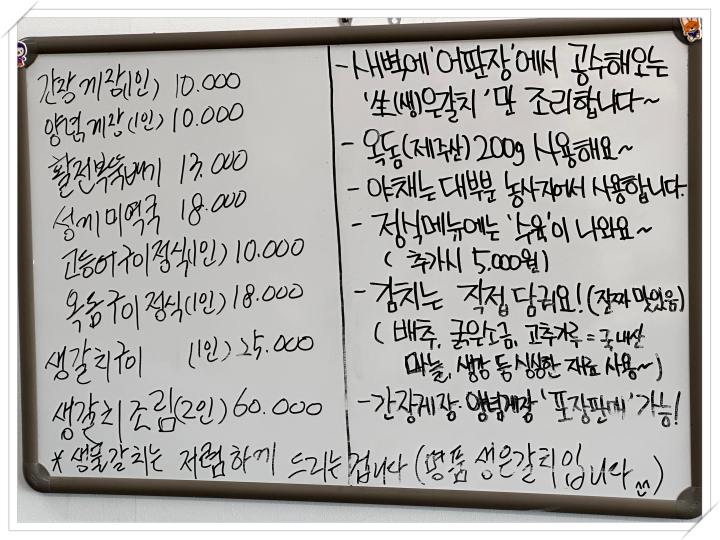 간장게장(1인) 10.000
양념게장(1인) 10.000
활전복뚝배기 13.000
성게미역국 18.000
고등어구이정식(1인) 10.000
옥돔구이정식(1인) 18.000
생갈치구이 (1인) 25.000
생갈치조림(2인) 60.000
* 생물갈치는 저렴하게 드리는겁니다 (명품 생은갈치입니다 ^^)
- 새벽에 '어판장'에서 공수해오는
'生(생)은갈치' 만 조리합니다~
- 옥돔(제주산) 200g 사용해요~
- 야채는 대부분 농사지어서 사용합니다.
- 정식메뉴에는 '수육'이 나와요~
( 추가시 5.000원)
- 김치는 직접 담궈요! (진짜 맛있음)
( 배추, 굵은소금, 고추가루 = 국내산
마늘, 생강 등 싱싱한 재료 사용~)
- 간장게장 양념게장 '포장판매' 가능!